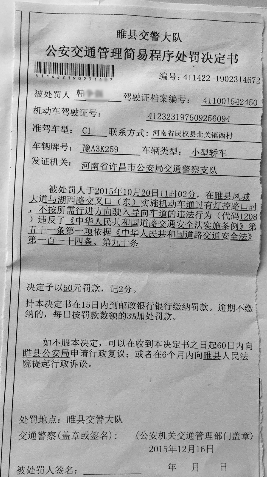 睢县交警大队
公安交通管理简易程序处罚决定书
编号:411422-1902314672
被处罚人 驾驶证档案编号:
机动车驾驶证号:
准驾车型: C1 联系方式:河南省民权县北关镇西村
车辆牌号: 豫A3K259 车辆类型:小型轿车
发证机关: 河南省许昌市公安局交通警察支队
被处罚人于2015年10月20日11时02分,在睢县凤城
大道与湖西路交叉口(东)实施机动车通过有灯控路口时
,不按所需行进方向驶入导向车道的违法行为(代码1208
)违反了《中华人民共和国道路交通安全法实施条例》第
五十一条第一项依据《中华人民共和国道路交通安全法》
第一百一十四条、第九十条
决定予以50元罚款,记2分。
持本决定书在15日内到邮政银行银行缴纳罚款。逾期不缴
纳的,每日按罚款数额的3%加处罚款。
如不服本决定,可以在收到本决定书之日起60日内向
睢县公安局申请行政复议;或者在6个月内向睢县人民法
院提起行政诉讼。
处罚地点:睢县交警大队
交通警察(盖章或签名): (公安机关交通管理部门盖章)
2015年12月16日
被处罚人签名: 年 月 日